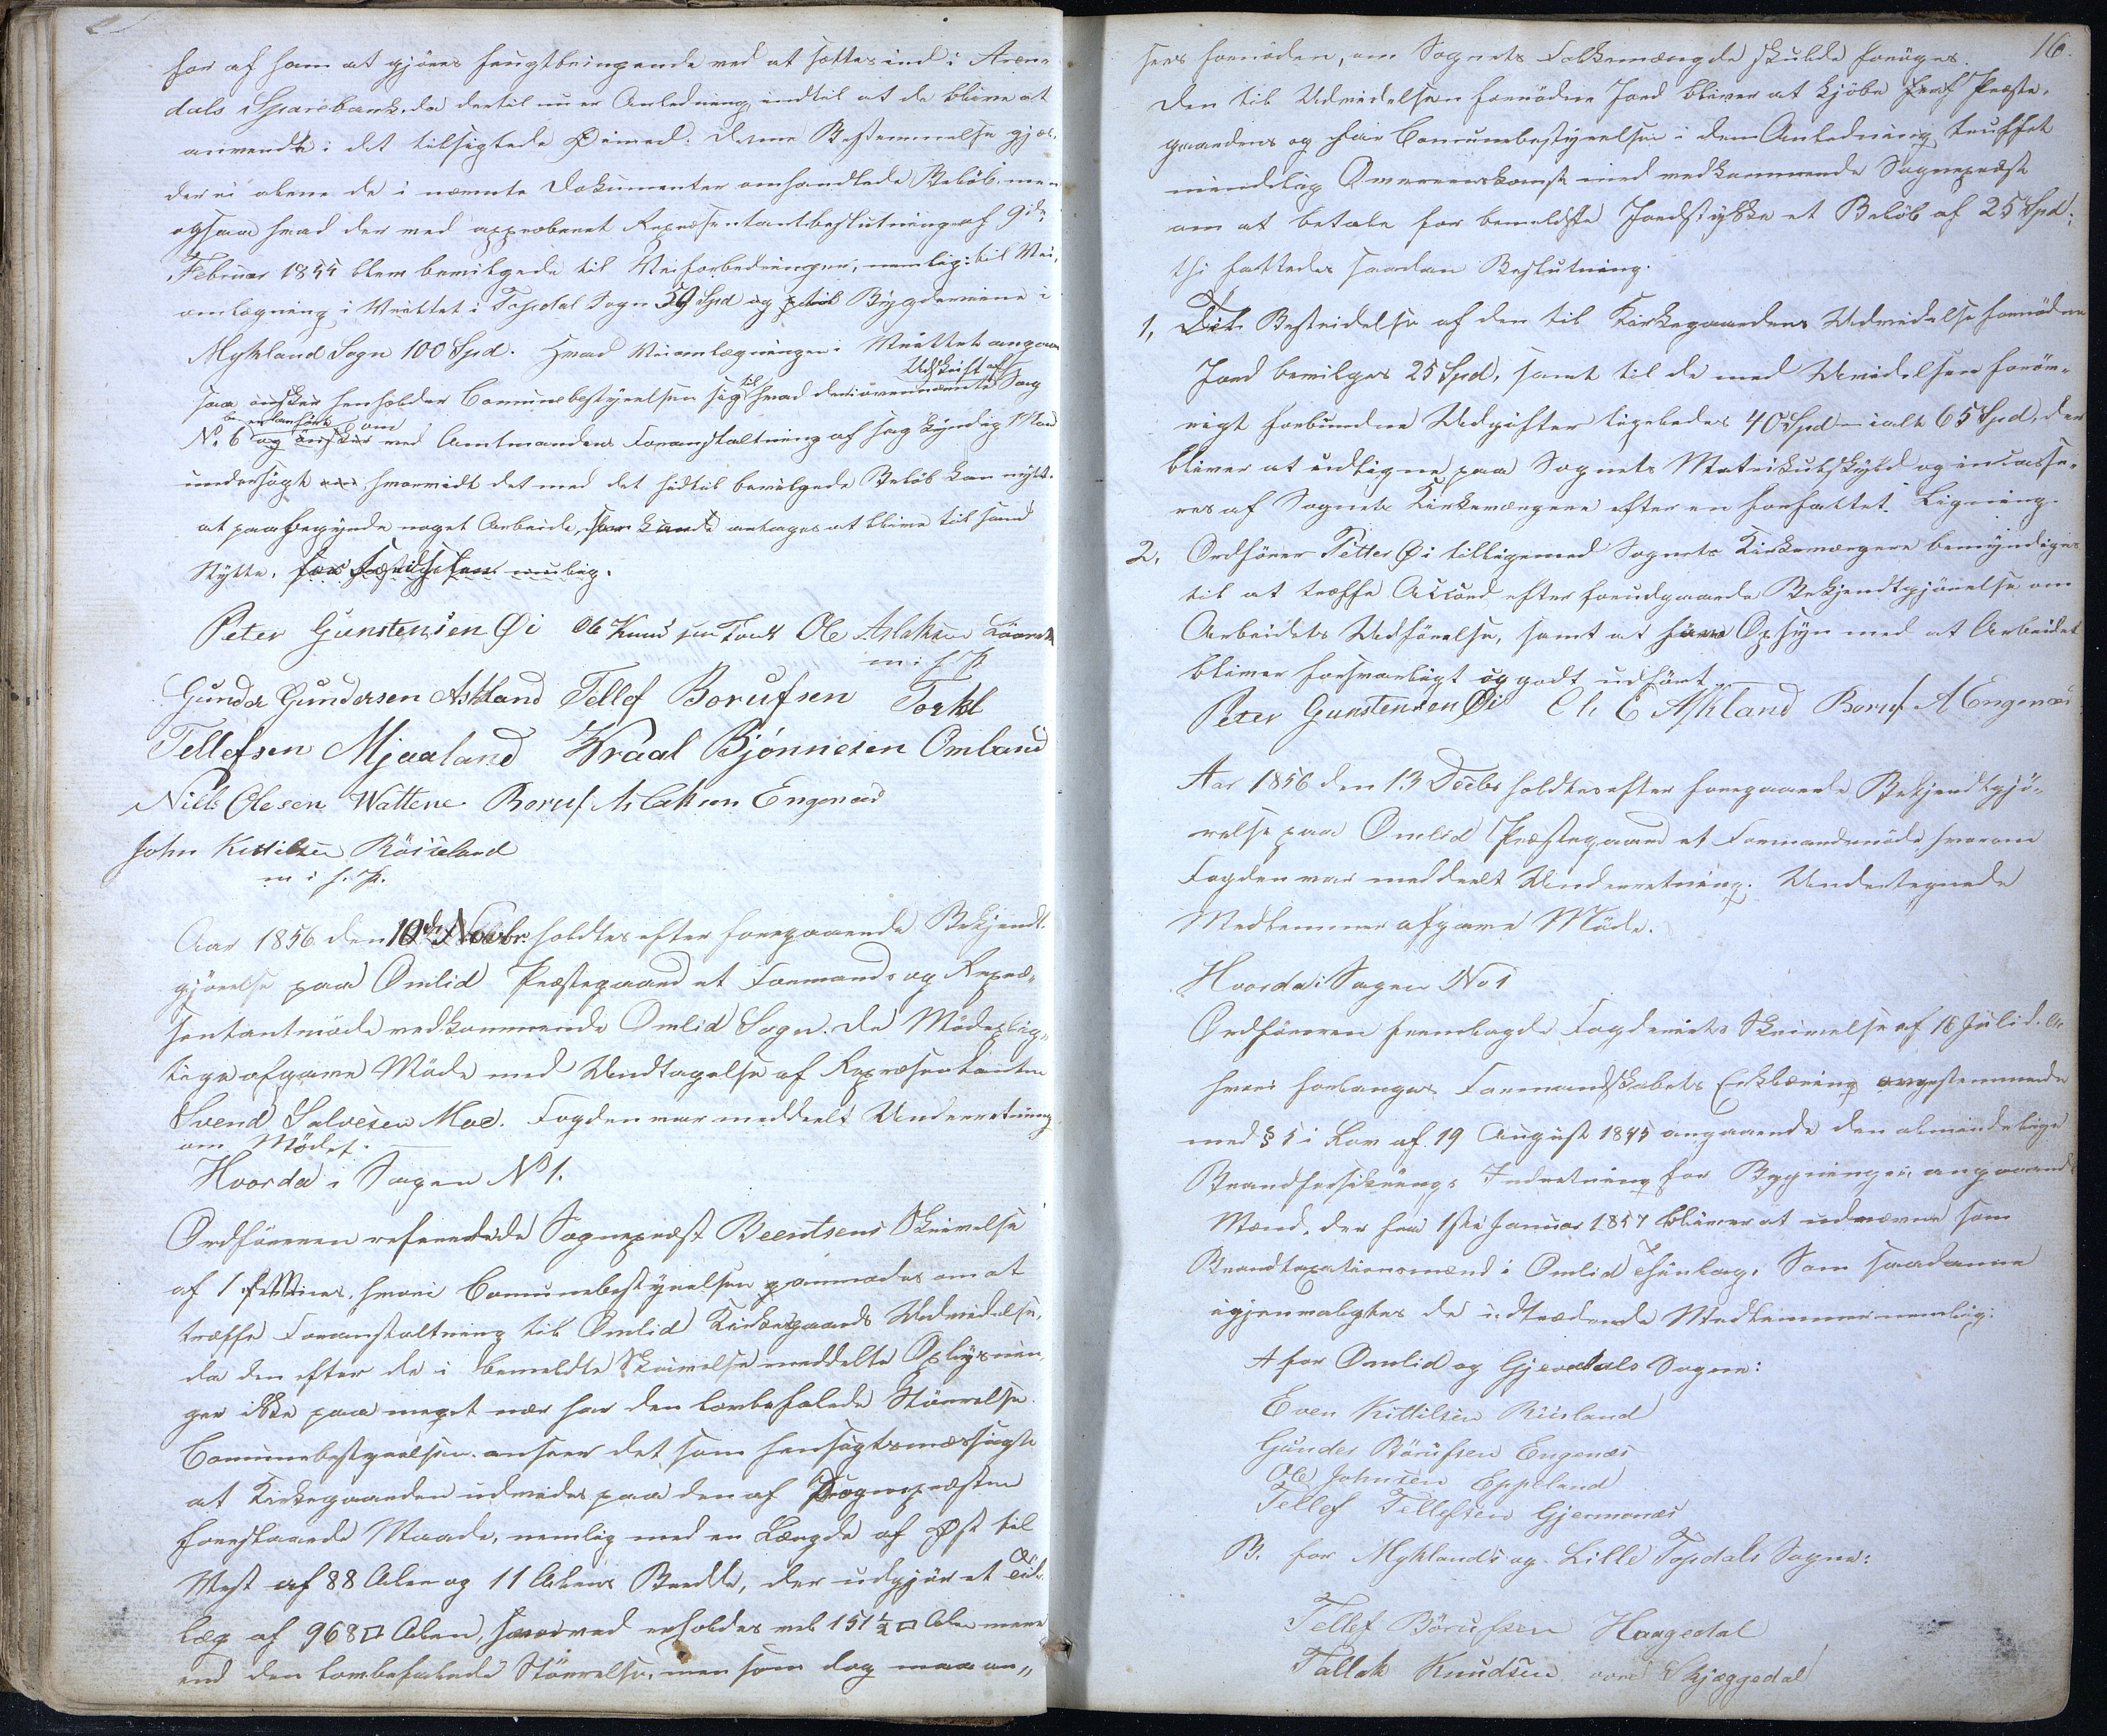 for af ham at gjøres frugtbringende ved at sættes ind i Aren-
dals Sparebank, da dertil nu er Anledning indtil at de blive at
anvende i det tilsigtede Øimed. Denne Bestemmelse gjæl-
der ei alene de i nævnte Dokumenter omhandlede Beløb, men
ogsaa hvad der ved approberet Repræsentantbeslutning af 9de
Februar 1855 blev bevilgede til Veiforbedringer, nemlig: til Vei-
omlægning i Vrættet i Topdal Sogn 59 Spd og til Bygdeveiene i
Mykland Sogn 100 Spd. Hvad Veiomlægningen i Vrættet angaar
Udskrift af
saa henholder Comunebestyrelsen sig til hvad der i ovennævnte Sag
No 6 er anført om ved Amtmandens Foranstaltning af sagkyndig Mand
undersøgt hvorvidt det med det hidtil bevilgede Beløb kan nytte
at paabegynde noget Arbeide, som kunde antages at blive til sand
Nytte, muelig.
Peter Gunstensen Øi Ole Knudsen Ole Aslaksen
m. f. P.
Gunder Gundersen Askland Tellef Borufsen Torkel
Tellefsen Mjaaland Kraal Bjønnesen Omland
Niels Olesen Wattene Boruf Aslaksen Engenæs
John Kittilsen Røiseland
m. f. P.
Aar 1856 den 10de Novbr. holdtes efter foregaaende Bekjendt-
gjørelse paa Omlid Præstegaard et Formands og Repræ-
sentantmøde vedkommende Omlid Sogn. De Mødeplig-
tige afgave Møde med Undtagelse af Repræsentanten
Svend Salvesen Moe. Fogden var meddeelt Underretning
om Mødet.
Hvorda i Sagen No 1.
Ordføreren refererede Sognepræst Beentsens Skrivelse
af 1 hvori Comunebestyrelsen anmodes om at
træffe Foranstaltning til Omlid Kirkegaards Udvidelse,
da den efter de i bemeldte Skrivelse meddelte Oplysnin-
ger ikke paa meget nær har den lovbefalede Størrelse.
Comunebestyrelsen anseer det som hensigtsmæssigst
at Kirkegaarden udvides paa den af Sognepræsten
foreslaaede Maade, nemlig med en Længde af Øst til
Vest af 88 Alen og 11 Alens Bredde, der udgjør et Are-
læg af 968 □ Alen, hvorved erholdes vel 151½ □ Alen mere
end den lovbefalede Størrelse, men som dog maa an-
16.
sees fornøden, om Sognets Folkemængde skulde forøges.
Den til Udvidelsen fornødne Jord bliver at kjøbe fra Præste-
gaarden og har Comunebestyrelsen i den Anledning truffet
mundtlig Overeenskomst med vedkommende Sognepræst
om at betale for bemeldte Jordstykke et Beløb af 25 Spd;
thi fattedes saadan Beslutning.
1, Til Bestridelse af den til Kirkegaardens Udvidelse fornødne
Jord bevilges 25 Spd, samt til de med Udvidelsen forøv-
rigt forbundne Udgifter ligeledes 40 Spd – ialt 65 Spd, der
bliver at udligne paa Sognets Matrikulskyld og incasse-
res af Sognets Kirkeværgere efter en forfattet Ligning.
2, Ordfører Petter Øi tilligemed Sognets Kirkeværgere bemyndiges
til at træffe Accord efter forudgaaende Bekjendtgjørelse om
Arbeidets Udførelse, samt at have Opsyn med at Arbeidet
bliver forsvarligt og godt udført.
Peter Gunstensen Øi Ch. E. Askland Boruf A Engenæs
Aar 1856 den 13 Decbr holdtes efter foregaaende Bekjendtgjø-
relse paa Omlid Præstegaard et Formandsmøde, hvorom
Fogden var meddeelt Underretning. Undertegnede
Medlemmer afgave Møde.
Hvorda i Sagen No 1
Ordføreren fremlagde Fogderiets Skrivelse af 16 Juli d. A.
hvori forlanges Formandskabets Erklæring overeenstemmende
med § 5 i Lov af 19 August 1845 angaaende den almindelige
Brandforsikrings Indretning for Bygninger, angaaende
Mænd, der fra 1ste Januar 1857 bliver at udnævne som
Brandtaxationsmænd i Omlid Thinglag. Som saadanne
igjenvalgtes de udtrædende Medlemmer nemlig:
A for Omlid og Gjevedals Sogne:
Even Kittilsen Riisland
Gunder Børufsen Engenæs
Ole Johnsen Eppeland
Tellef Tellefsen Gjermonæs
B. for Myklands og Lille Topdals Sogne:
Tellef Børufsen Haugedal
Tallak Knudsen øvre Skjæggedal